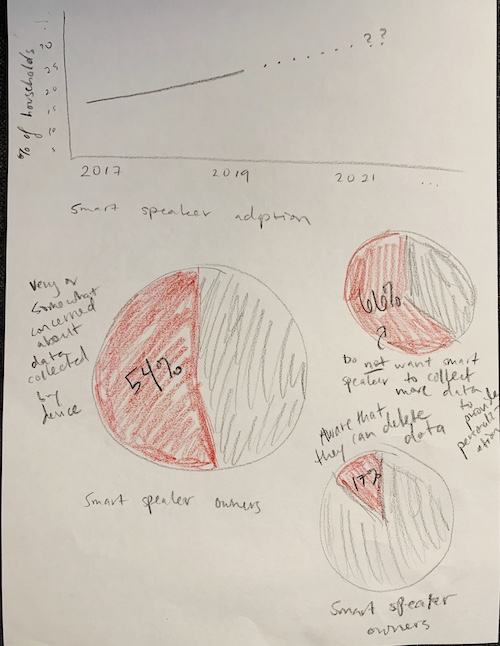 % of households
30
25
20
15
10
5
2017 2019 2021 ...
? ?
Smart speaker adoption
Very or
Somewhat
concerned
about
data
collected
by
device
54%
Smart speaker owners
66%
Do not want smart
speaker to collect
more data
to
provide
personaliz-
ation
Aware that
they can delete
data
17%
Smart speaker
owners